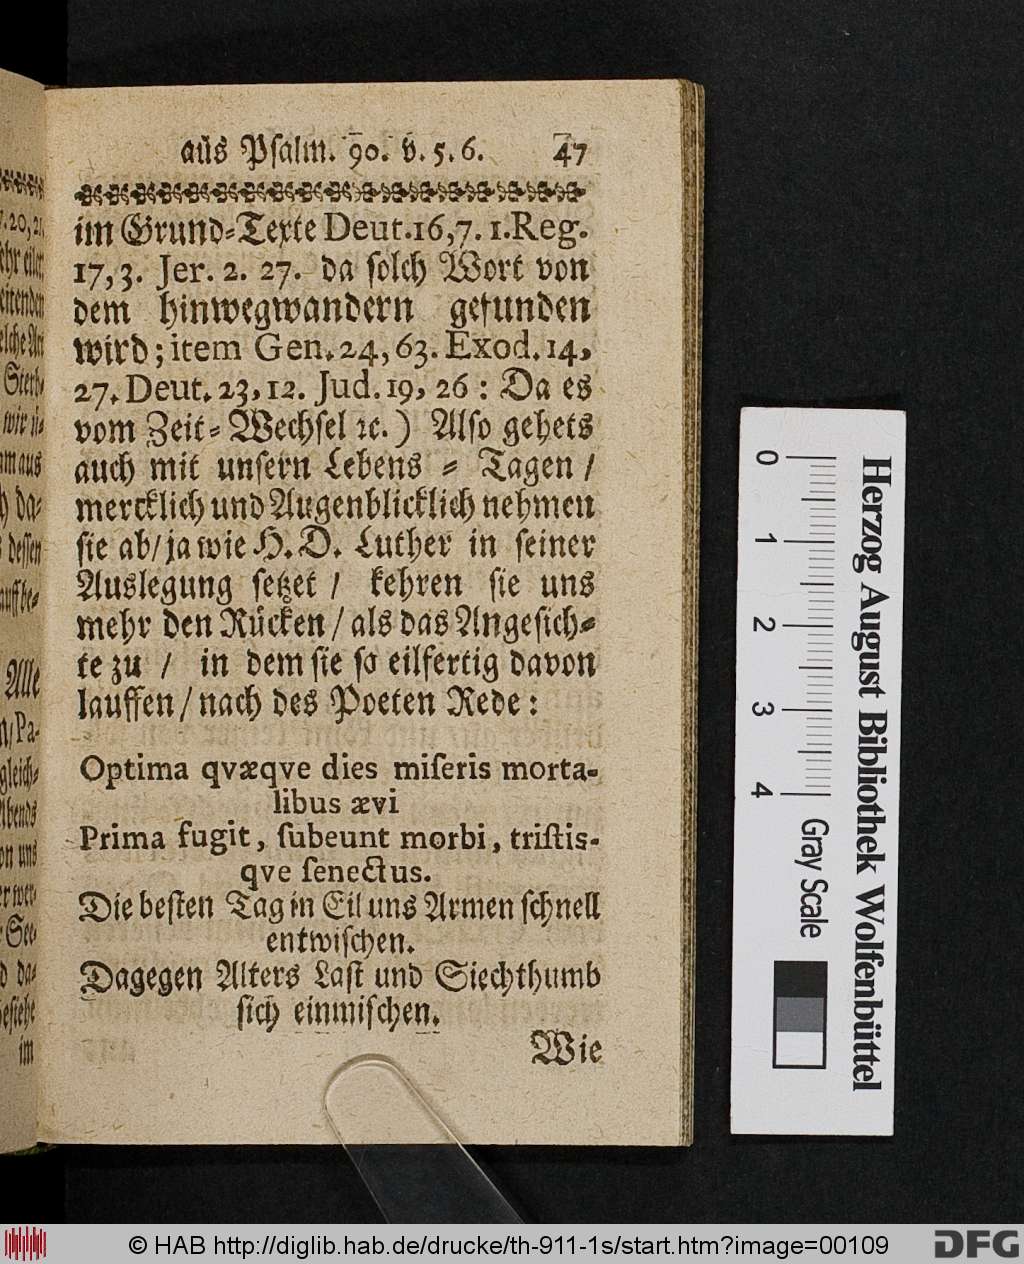 aus Psalm. 90. v. 5. 6. 47
im Grund-Texte Deut. 16, 7. 1. Reg.
17, 3. Jer. 2. 27. da solch Wort von
dem hinwegwandern gefunden
wird; item Gen. 24, 63. Exod. 14,
27. Deut. 23, 12. Jud. 19, 26: Da es
vom Zeit-Wechsel ꝛc.) Also gehets
auch mit unsern Lebens-Tagen /
mercklich und Augenblicklich nehmen
sie ab / ja wie H. D. Luther in seiner
Auslegung setzet / kehren sie uns
mehr den Rücken / als das Angesich-
te zu / in dem sie so eilfertig davon
lauffen / nach des Poeten Rede:
Optima qvæqve dies miseris morta-
libus ævi
Prima fugit, subeunt morbi, tristis-
qve senectus.
Die besten Tag in Eil uns Armen schnell
entwischen.
Dagegen Alters Last und Siechthumb
sich einmischen.
Wie
0 1 2 3 4
Gray Scale
Herzog August Bibliothek Wolfenbüttel
© HAB http://diglib.hab.de/drucke/th-911-1s/start.htm?image=00109
DFG